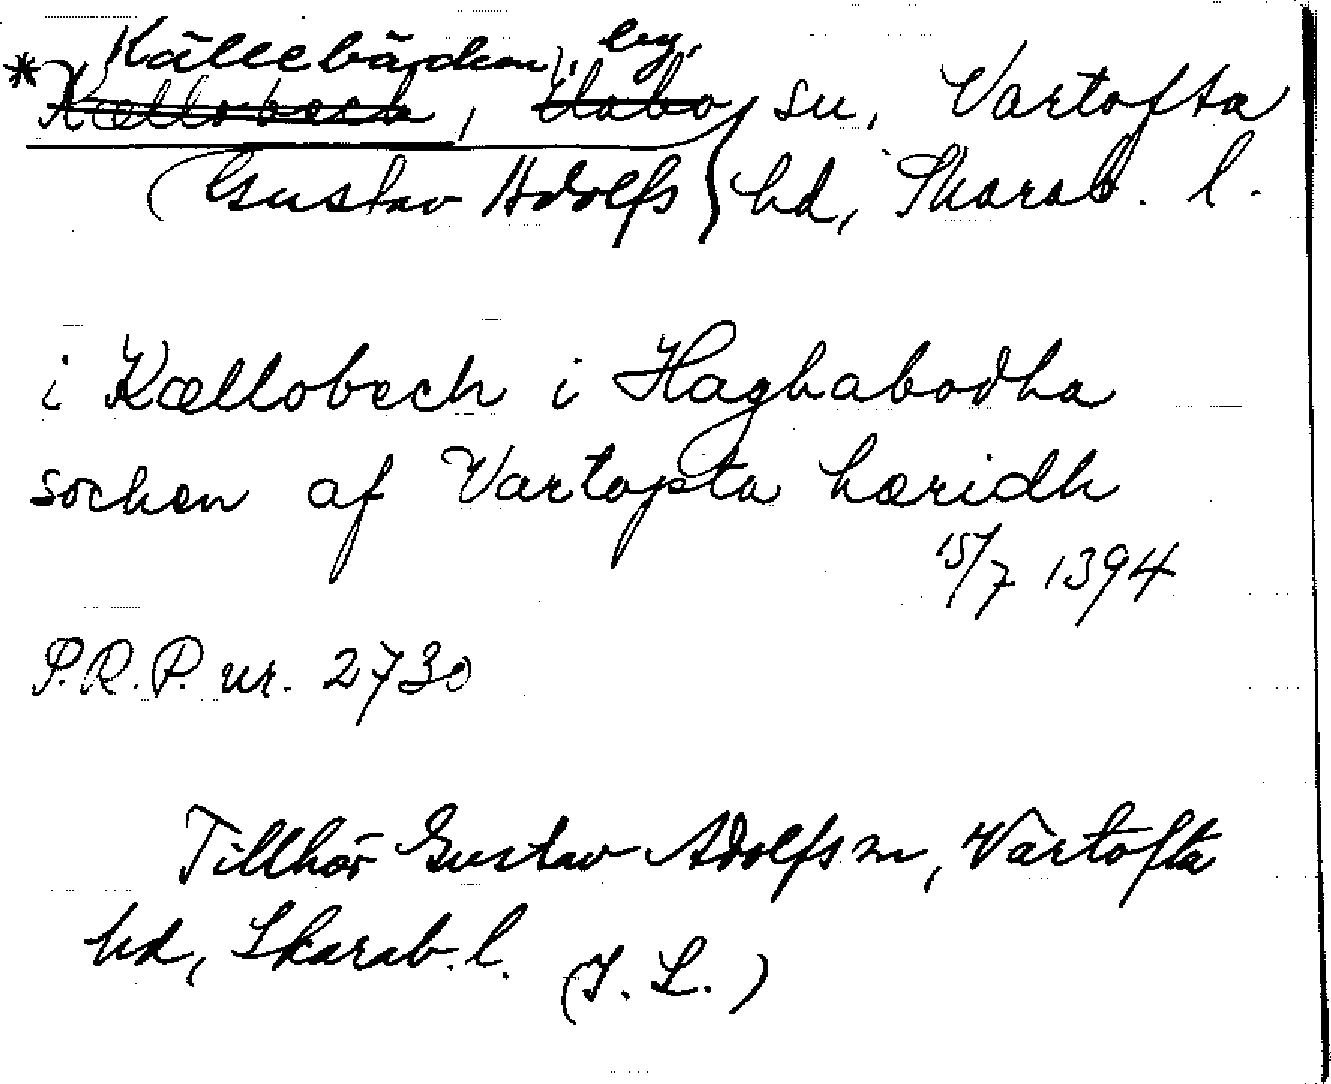 Källebäcken, by,
* Kællobech, Habo sn, Vartofta
(Gustav Adolfs) hd, Skarab. l.
i Kællobech i Haghabodha
sochen af Vartopta hæridh
15/7 1394
P.R.P. nr. 2730
Tillhör Gustav Adolfs sn, Vartofta
hd, Skarab. l. (I. L.)